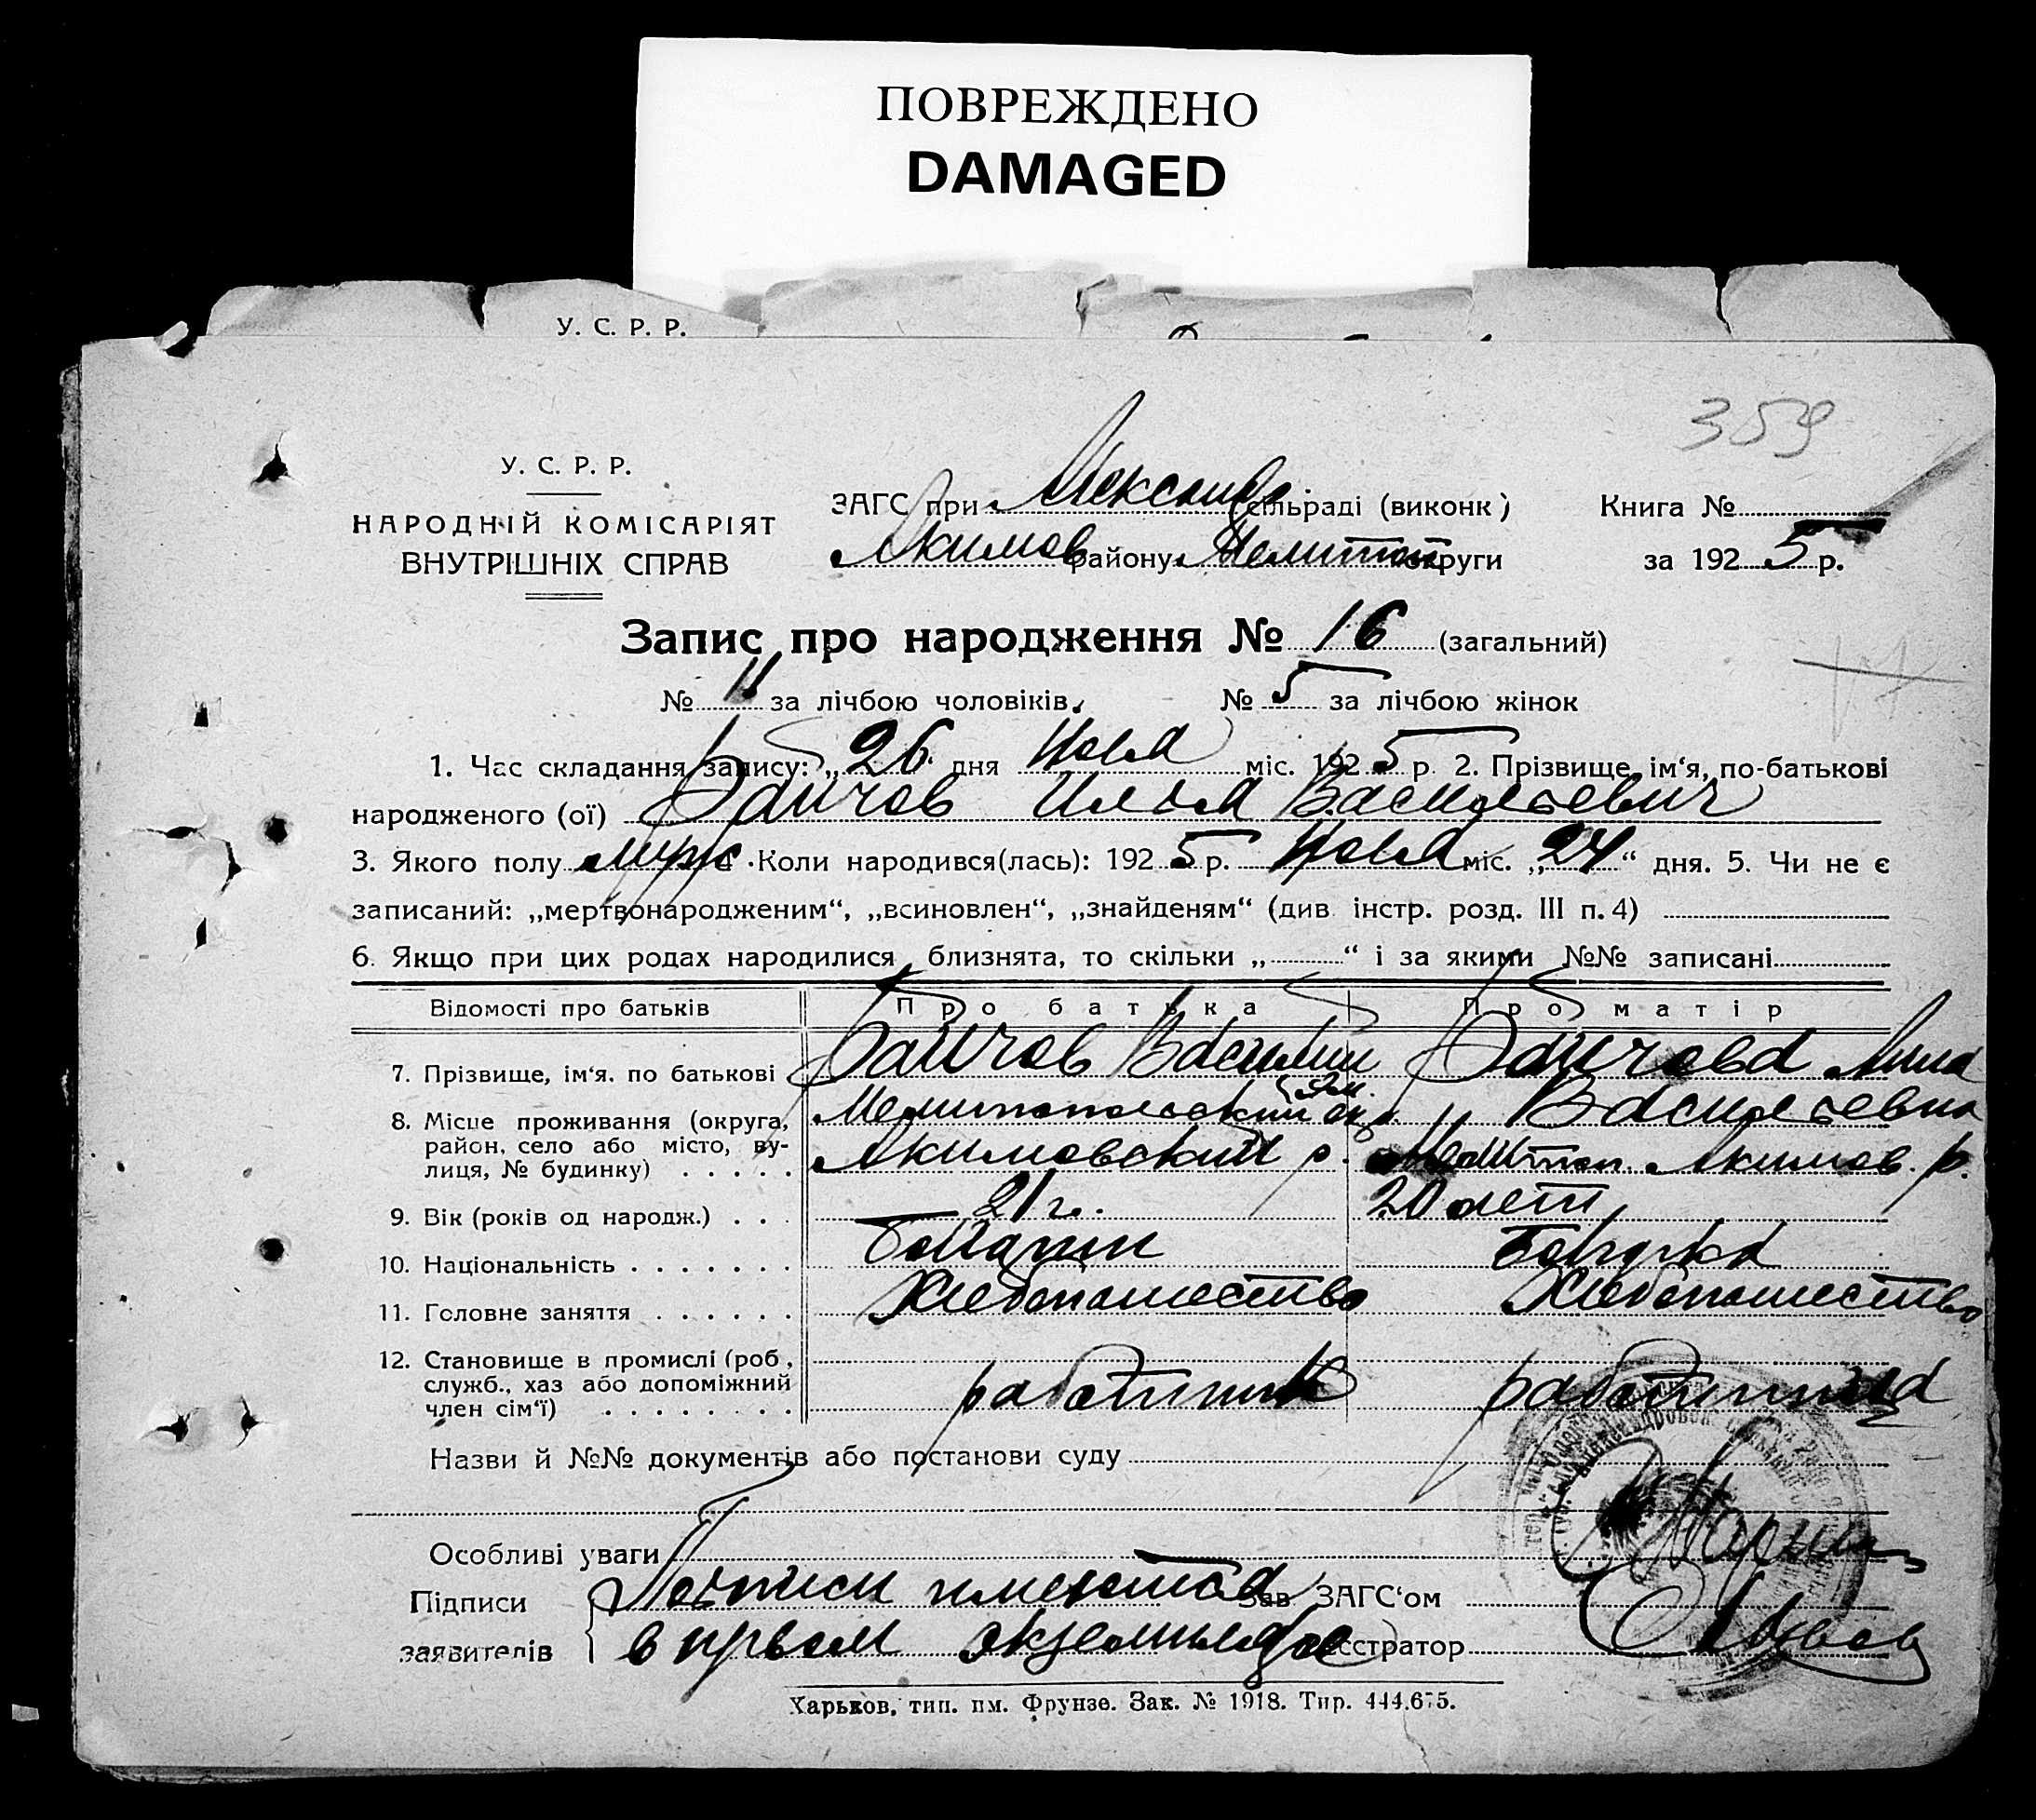 ПОВРЕЖДЕНО
DAMAGED
У. С. Р. Р.
359
У. С. Р. Р.
НАРОДНІЙ КОМІСАРІЯТ
ВНУТРІШНІХ СПРАВ
ЗАГС при Александр. сільраді (виконк)
Акимов району Мелитоп округи
Книга №
за 192 5 р.
Запис про народження № 16 (загальний)
№ 11 за лічбою чоловіків, № 5 за лічбою жінок
1. Час складання запису: „ 26 дня Ноля міс. 192 5 р. 2. Прізвище, ім‘я, по-батькові
народженого (ої) Файчов Илья Васильевич
3. Якого полу муж 4. Коли народився(лась): 192 5 р. Ноля міс. „ 24 “ дня. 5. Чи не є
записаний: „мертвонародженим“, „всиновлен“, „знайденям“ (див. інстр. розд. III п. 4)
6. Якщо при цих родах народилися близнята, то скільки „ “ і за якими №№ записані
Відомості про батьків Про батька Про матір
7. Прізвище, ім‘я, по батькові Василий Анна
8. Місце проживання (округа, Мелитопольский ок. Васильевна
район, село або місто, ву-
лиця, № будинку) Акимовский р. Мелитоп. Акимов. р.
9. Вік (років од народж.) 21 г. 20 лет
10. Національність Болгарин Болгарка
11. Головне заняття Хлебопашество Хлебопашество
12. Становище в промислі (роб.,
служб., хаз або допоміжний
член сім‘ї) работник работница
Назви й №№ документів або постанови суду
Особливі уваги
Підписи Подписи имеются Зав ЗАГС‘ом
заявителів в первом экземпляре Реєстратор
Харьков, тип. им. Фрунзе. Зак. № 1918. Тир. 444.675.